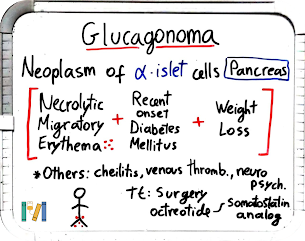 Glucagonoma
Neoplasm of α-islet cells Pancreas
Necrolytic Migratory Erythema + Recent onset Diabetes Mellitus + Weight Loss
*Others: cheilitis, venous thromb., neuro psych.
Tt: Surgery
octreotide Somatostatin analog